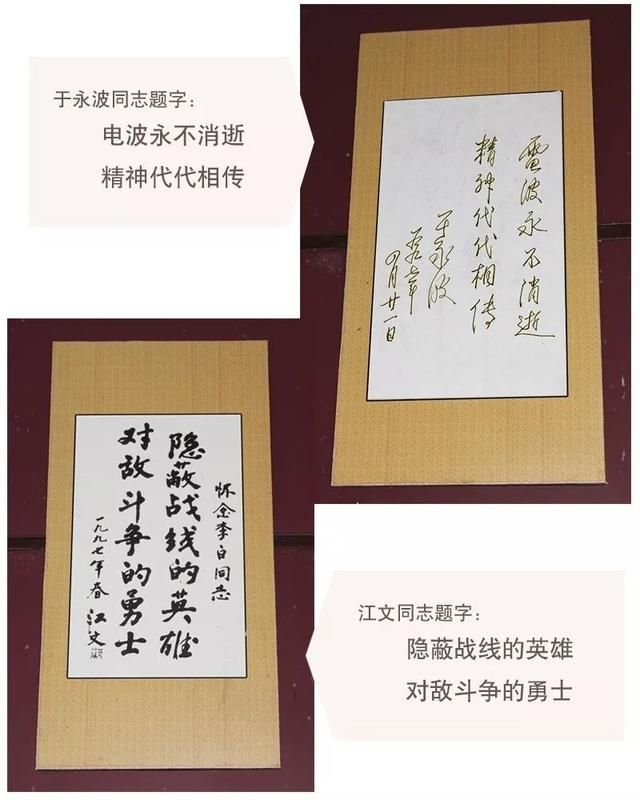 于永波同志题字：
电波永不消逝
精神代代相传
電波永不消逝
精神代代相传
于永波
四月廿一日
怀念李白同志
隐蔽战线的英雄
对敌斗争的勇士
一九九七年春 江文
江文同志题字：
隐蔽战线的英雄
对敌斗争的勇士